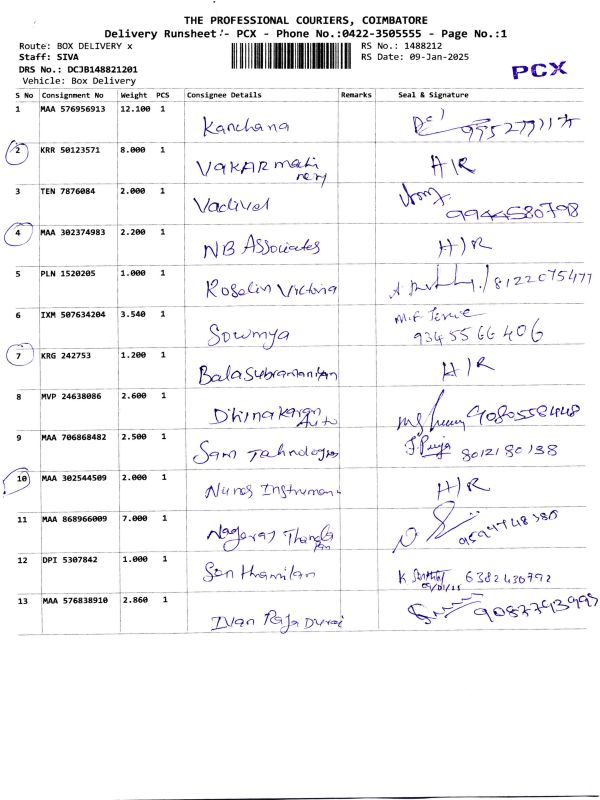 THE PROFESSIONAL COURIERS, COIMBATORE
Delivery Runsheet - PCX - Phone No.:0422-3505555 - Page No.:1
Route: BOX DELIVERY x RS No.: 1488212
Staff: SIVA RS Date: 09-Jan-2025
DRS No.: DCJB148821201 PCX
Vehicle: Box Delivery
S No Consignment No Weight PCS Consignee Details Remarks Seal & Signature
1 MAA 576956913 12.100 1 Kanchana
2 KRR 50123571 8.000 1 VAKAR H/R
3 TEN 7876084 2.000 1 Vadivel 9944580798
4 MAA 302374983 2.200 1 NB Associates H/R
5 PLN 1520205 1.000 1 Roselin Victoria 8122075477
6 IXM 507634204 3.540 1 Sowmya 9345566406
7 KRG 242753 1.200 1 Balasubramanian H/R
8 MVP 24638086 2.600 1 Dhinakaran Auto
9 MAA 706868482 2.500 1 Sam 8012180138
10 MAA 302544509 2.000 1 H/R
11 MAA 868966009 7.000 1 Nagaraj
12 DPI 5307842 1.000 1 Senthamilan 6382430792
09/01/25
13 MAA 576838910 2.860 1 Ivan Raja Durai 9087793993